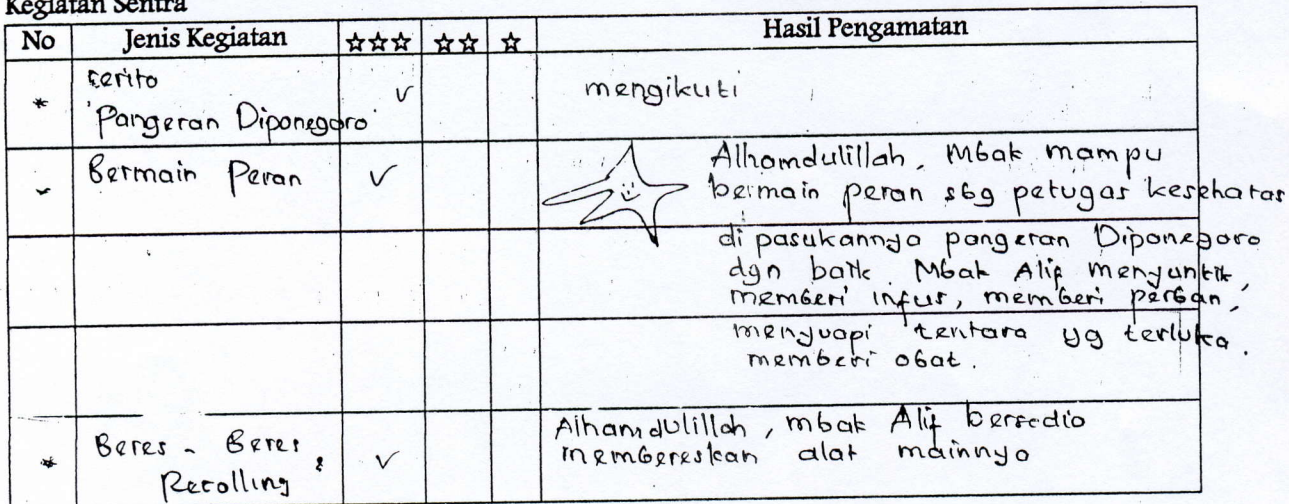 Kegiatan Sentra
No Jenis Kegiatan ☆☆☆ ☆☆ ☆ Hasil Pengamatan
* cerito v mengikuti
'Pangeran Diponegoro'
Bermain Peran v Alhamdulillah, Mbak mampu
bermain peran sbg petugas kesehatas
di pasukannya pangeran Diponegoro
dgn baik. Mbak Alif menyuntik,
memberi infus, memberi perban,
menyuapi tentara yg terluka.
memberi obat.
* Beres - Beres, v Alhamdulillah, mbak Alif bersedia
Recolling membereskan alat mainnya